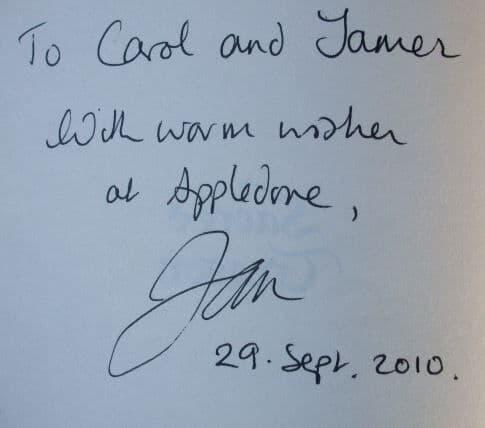 To Carol and James
With warm wishes
at Appledore,
Jan
29. Sept. 2010.